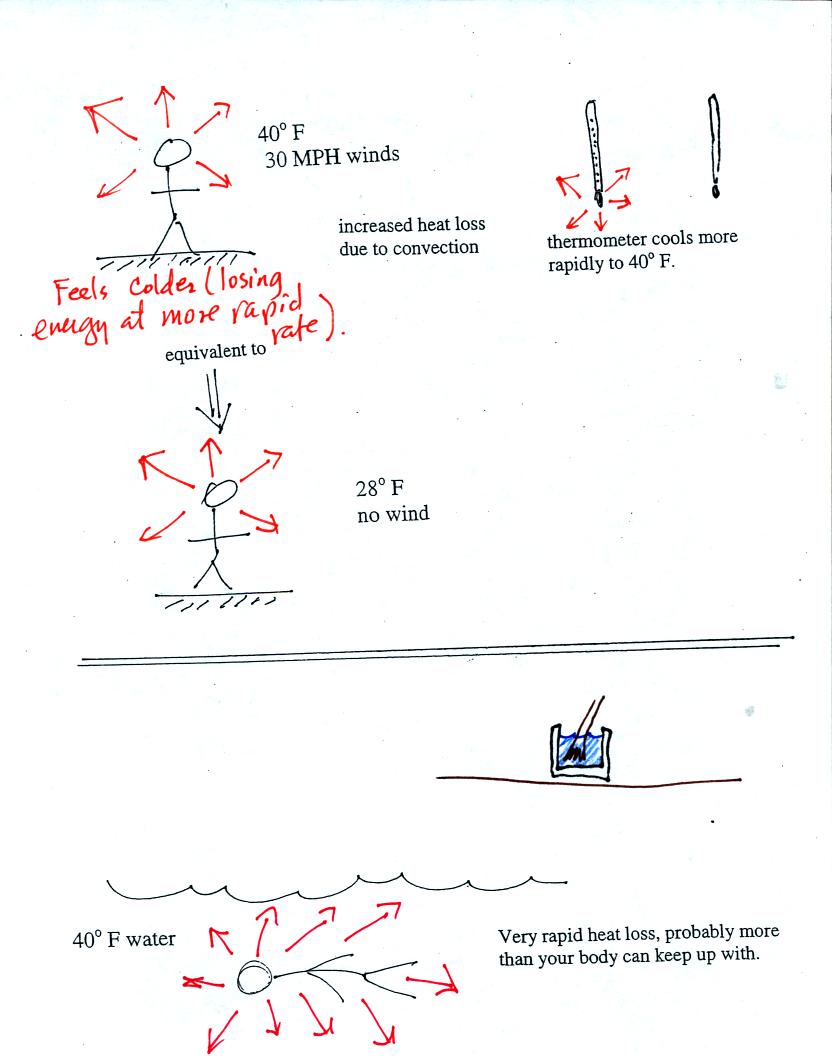 40° F
30 MPH winds
increased heat loss
due to convection
thermometer cools more
rapidly to 40° F.
Feels colder (losing
energy at more rapid
rate).
equivalent to
28° F
no wind
40° F water
Very rapid heat loss, probably more
than your body can keep up with.